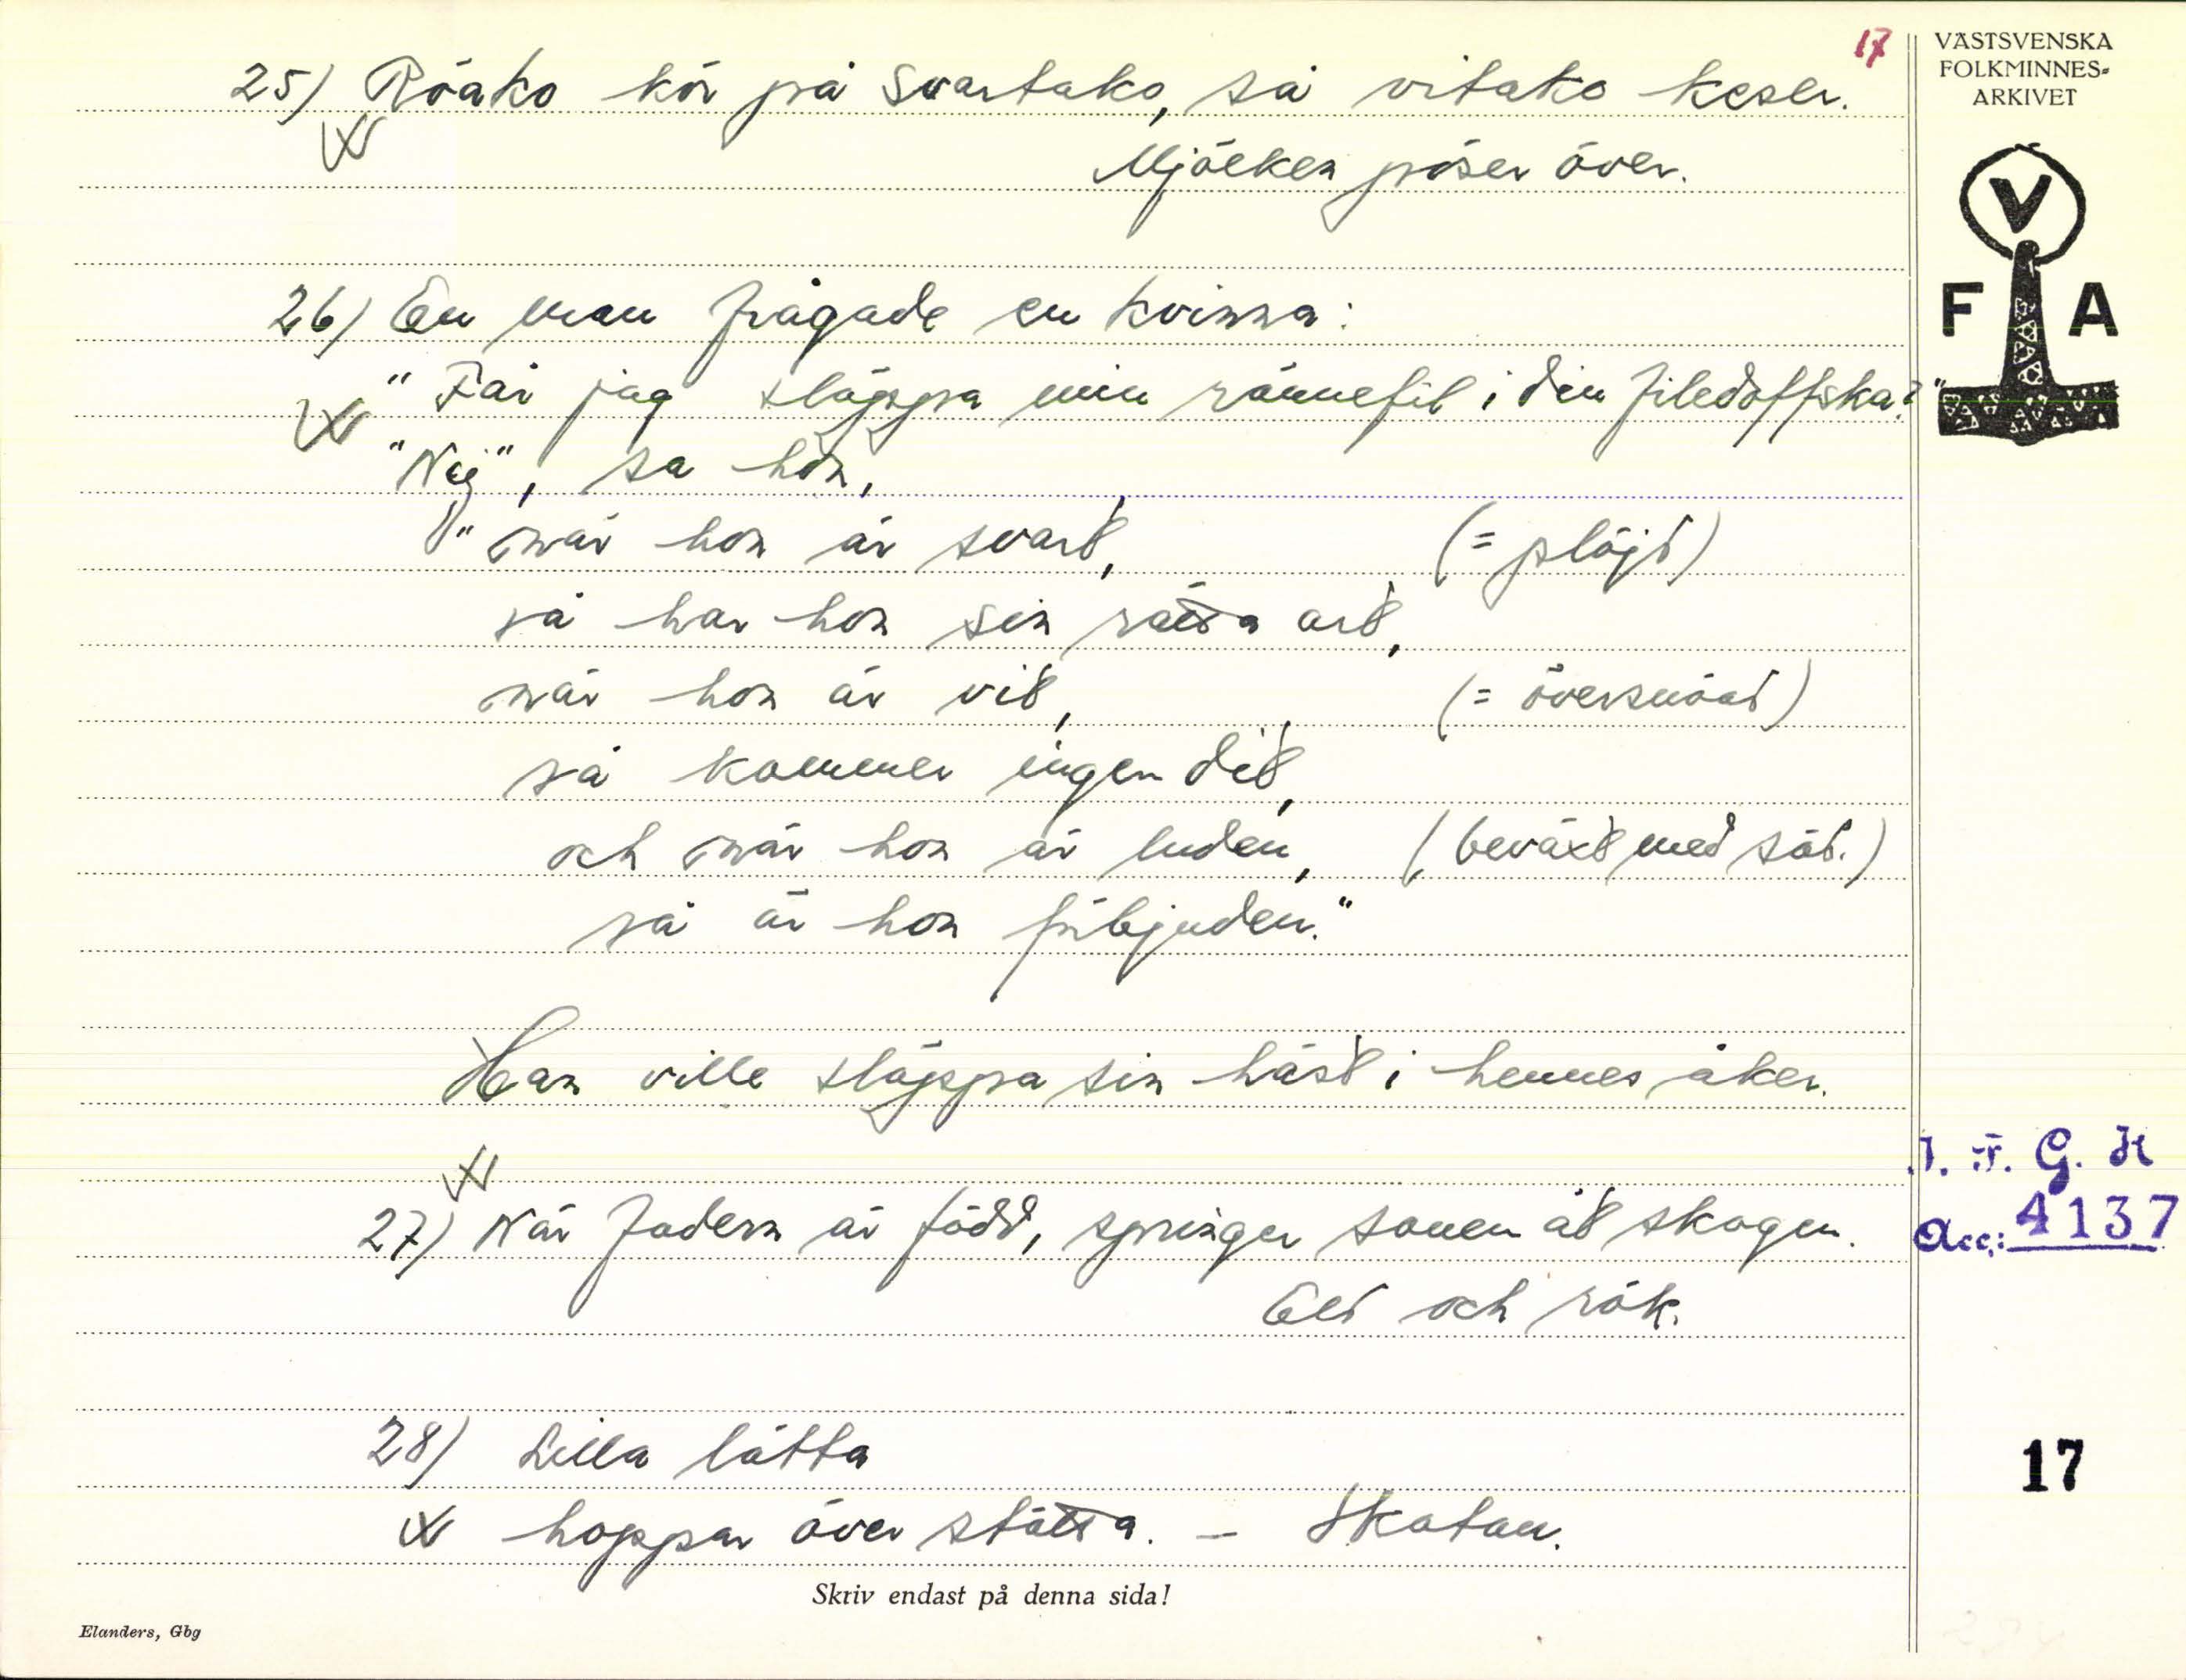 17
25) Röako kör på Svartako, så vitako keser.
Mjölken pöser över.
26) En man frågade en kvinna:
"Får jag släppa min rännefil i din filedoffska?"
"Nej", sa hon,
"när hon är svart, (= plöjd)
så har hon sin rätta art,
när hon är vit, (= översnöad)
så kommer ingen dit,
och när hon är luden, (beväxt med säd.)
så är hon förbjuden."
Han ville släppa sin häst i hennes åker.
27) När fadern är född, springer sonen åt skogen.
Eld och rök.
28) Lilla lätta
hoppar över stätta. – Skatan.
Skriv endast på denna sida!
Elanders, Gbg
VÄSTSVENSKA
FOLKMINNES-
ARKIVET
V
F A
I. F. G. H
Acc: 4137
17